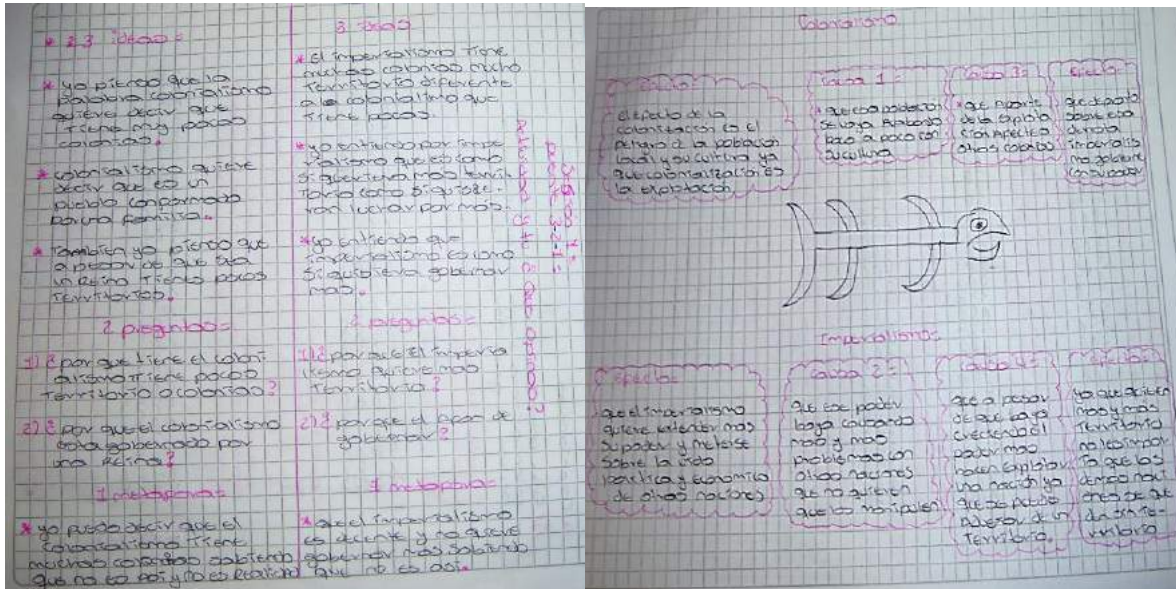 * 23 ideas=
* yo pienso que la
palabra colonialismo
quiere decir que
tiene muy pocas
colonias.
* colonialismo quiere
decir que es un
pueblo conformado
por una familia.
* Tambien yo pienso que
apesar de que sea
un Reino tiene pocos
territorios.
2 preguntas=
1) ¿por que tiene el coloni-
alismo tiene pocos
territorio o colonias?
2) ¿por que el colonialismo
esta gobernado por
una Reina?
1 metafora=
* yo puedo decir que el
colonialismo tiene
muchas colonias sabiendo
que no es asi y no es Realidad
3 ideas
* el imperialismo tiene
muchas colonias mucho
territorio diferente
a le colonialimo que
tiene pocas.
* yo entiendo por impe
rialismo que es como
si quisiera mas terri-
torio como si quisie-
ran luchar por mas.
* yo entiendo que
imperialismo es como
si quisiera gobernar
mas.
2 preguntas=
1) ¿por que el imperia
lismo quiere mas
territorio?
2) ¿por que el de
gobernar?
1 metafora=
* que el imperialismo
es decente y no quiere
gobernar mas sabiendo
que no es asi.
3-2-1
Colonialismo
efecto=
el efecto de la
colonización es el
a la población
local y su cultura ya
que colonialización es
la explotación
causa 1=
* que esa población
se vaya Acabando
poco a poco con
su cultura
causa 3=
* que aparte
de la explota
ción Afectica
otras cosas
efecto=
que
sobre esa
imperialis
mo gobierne
Imperialismo=
efecto=
que el imperialismo
quiere extender mas
su poder y meterse
sobre la vida
politica y economica
de otras naciones
causa 2=
que ese poder
baya causando
mas y mas
problemas con
otras naciones
que no quieren
que los manipulen
causa 4=
que a pesar
de que baya
creciendo el
poder mas
hacen explotar
una nación ya
que se puede
de un
territorio.
efecto=
ya que quieren
mas y mas
territorio
no les impor
ta que las
demas naci
ones se que
den sin te-
rritorio